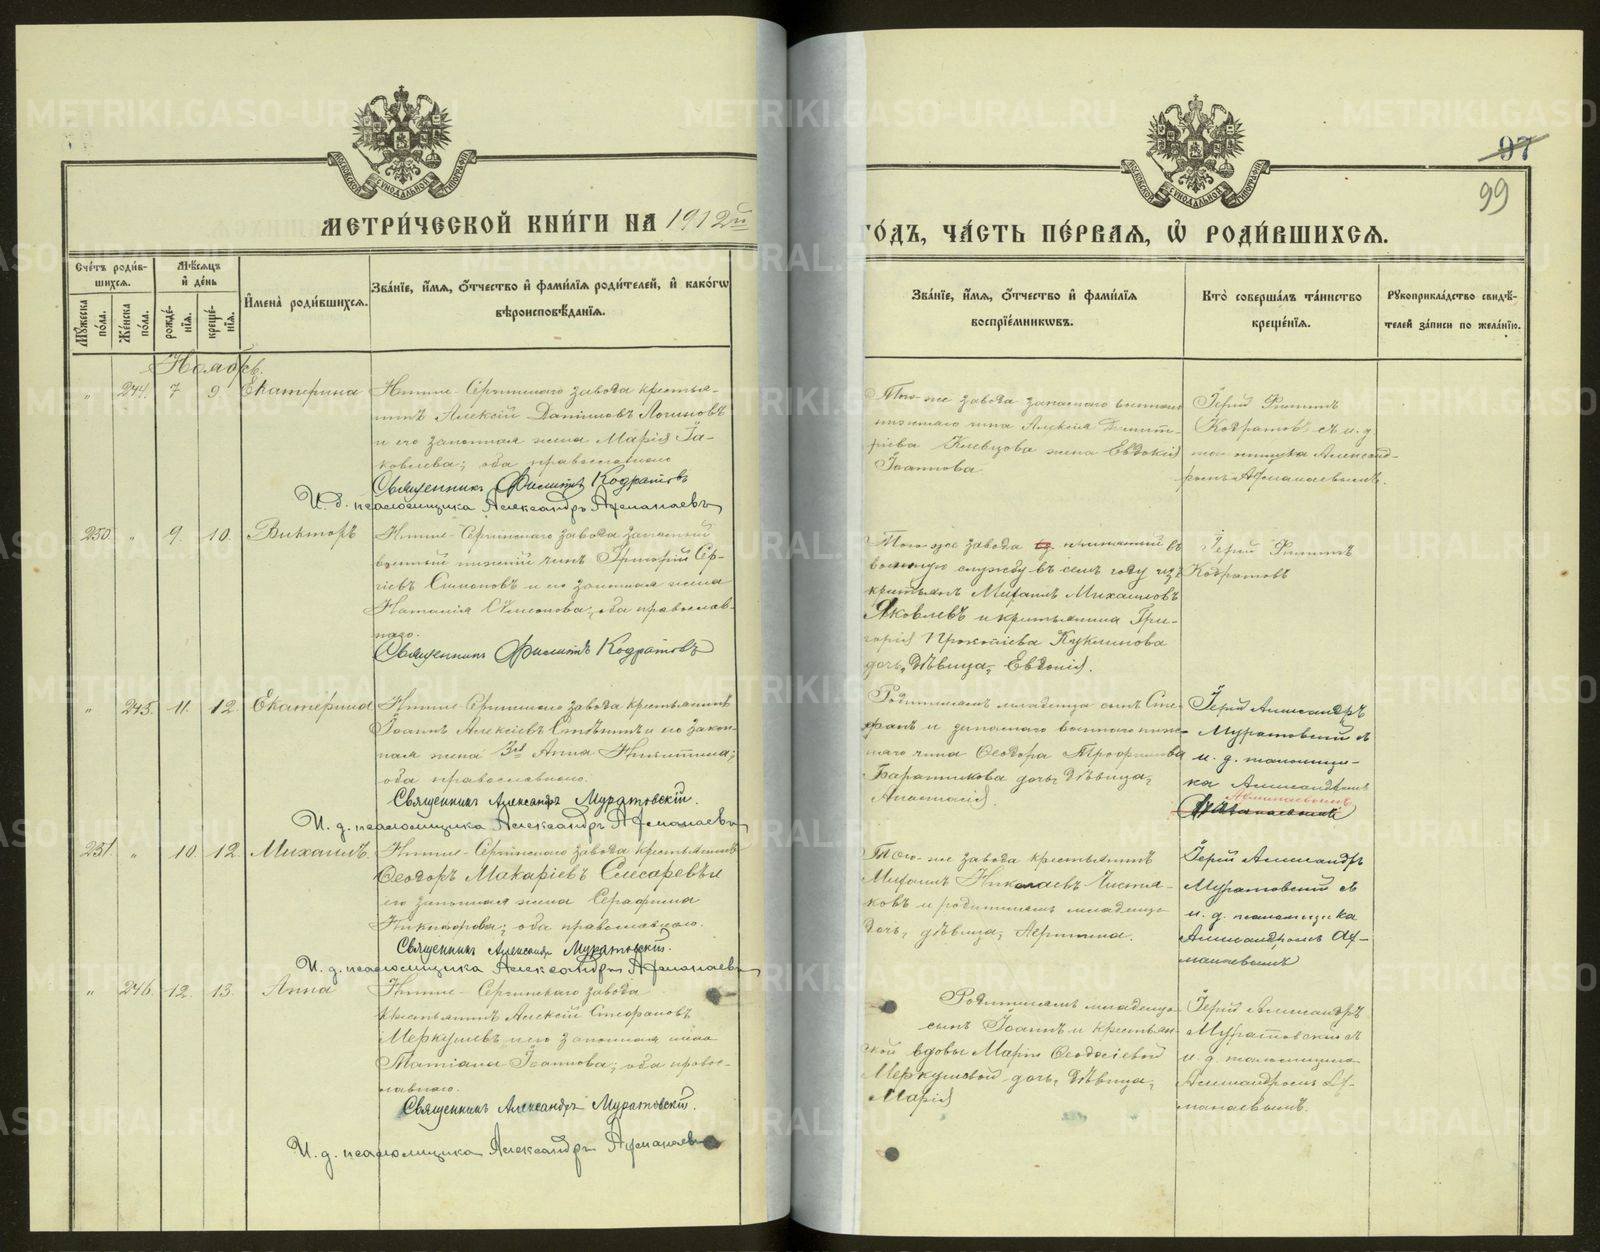 МЕТРИ́ЧЕСКОЙ КНИ́ГИ НА 1912й
ГО́ДЪ, ЧА́СТЬ ПЕ́РВАЯ, Ѡ҆ РОДИ́ВШИХСЯ.
97
99
Сче́тъ роди́в-
шихся.
Мѣ́сяцъ
и҆ де́нь
Мꙋ́жеска по́ла.
Же́нска по́ла.
рожде́-
нїя.
креще́-
нїя.
И҆мена̀ роди́вшихся.
Зва́нїе, и҆́мя, ѻ҆́тчество и҆ фами́лїя роди́телей, и҆ како́гѡ
вѣроисповѣ́данїя.
Зва́нїе, и҆́мя, ѻ҆́тчество и҆ фами́лїя
воспрїе́мникѡвъ.
Кто̀ соверша́лъ та́инство
креще́нїя.
Рꙋкоприкла́дство свидѣ́-
телей за́писи по жела́нїю.
Ноябрь.
„ 244. 7 9 Екатерина
Нижне-Сергинскаго завода крестья-
нинъ Алексій Даниловъ Логиновъ
и его законная жена Марія Іа-
ковлева; оба православнаго
Священникъ Филиппъ Кодратовъ
И. д. псаломщика Александръ Афманаевъ
Того-же завода запаснаго военнаго
нижняго чина Алексія Димит-
ріева Клевцова жена Евдокія
Іоаннова
Іерей Филиппъ
Кодратовъ съ и. д.
псаломщика Александ-
ромъ Афманаевымъ.
250. „ 9. 10. Викторъ
Нижне-Сергинскаго завода запасный
военный нижній чинъ Григорій Сер-
гіевъ Симоновъ и его законная жена
Наталія Сѵмеонова; оба православ-
наго.
Священникъ Филиппъ Кодратовъ
Того-же завода принятый въ
военную службу въ семъ году изъ
крестьянъ Михаилъ Михаиловъ
Яковлевъ и крестьянина Гри-
горія Прокопіева Куклинова
дочь, дѣвица, Евдокія.
Іерей Филиппъ
Кодратовъ
„ 245. 11. 12. Екатерина
Нижне-Сергинскаго завода крестьянинъ
Іоаннъ Алексіевъ и его закон-
ная жена Анна Никитина;
оба православнаго.
Священникъ Александръ Муратовскій.
И. д. псаломщика Александръ Афманаевъ
Родителямъ младенца сынъ Сте-
фанъ и запаснаго военнаго ниж-
няго чина Ѳеодора Трофимова
Баранникова дочь, дѣвица,
Анастасія.
Іерей Александръ
Муратовскій съ
и. д. псаломщи-
ка Александромъ
Афманаевымъ
251. „ 10. 12. Михаилъ
Нижне-Сергинскаго завода крестьянинъ
Ѳеодоръ Макаріевъ Елисаревъ и
его законная жена Серафима
Никифорова; оба православнаго.
Священникъ Александръ Муратовскій.
И. д. псаломщика Александръ Афманаевъ
Того-же завода крестьянинъ
Михаилъ Николаевъ Чистя-
ковъ и родителямъ младенца
дочь, дѣвица,
Іерей Александръ
Муратовскій съ
и. д. псаломщика
Александромъ Аф-
манаевымъ
„ 246. 12. 13. Анна
Нижне-Сергинскаго завода
крестьянинъ Алексій Стефановъ
Меркушевъ и его законная жена
Татіана Іоаннова; оба право-
славнаго.
Священникъ Александръ Муратовскій.
И. д. псаломщика Александръ Афманаевъ
Родителямъ младенца
сынъ Іоаннъ и крестьян-
ской вдовы Маріи Ѳеодосіевой
Меркушевой дочь, дѣвица,
Марія
Іерей Александръ
Муратовскій съ
и. д. псаломщика
Александромъ Аф-
манаевымъ.
METRIKI.GASO-URAL.RU